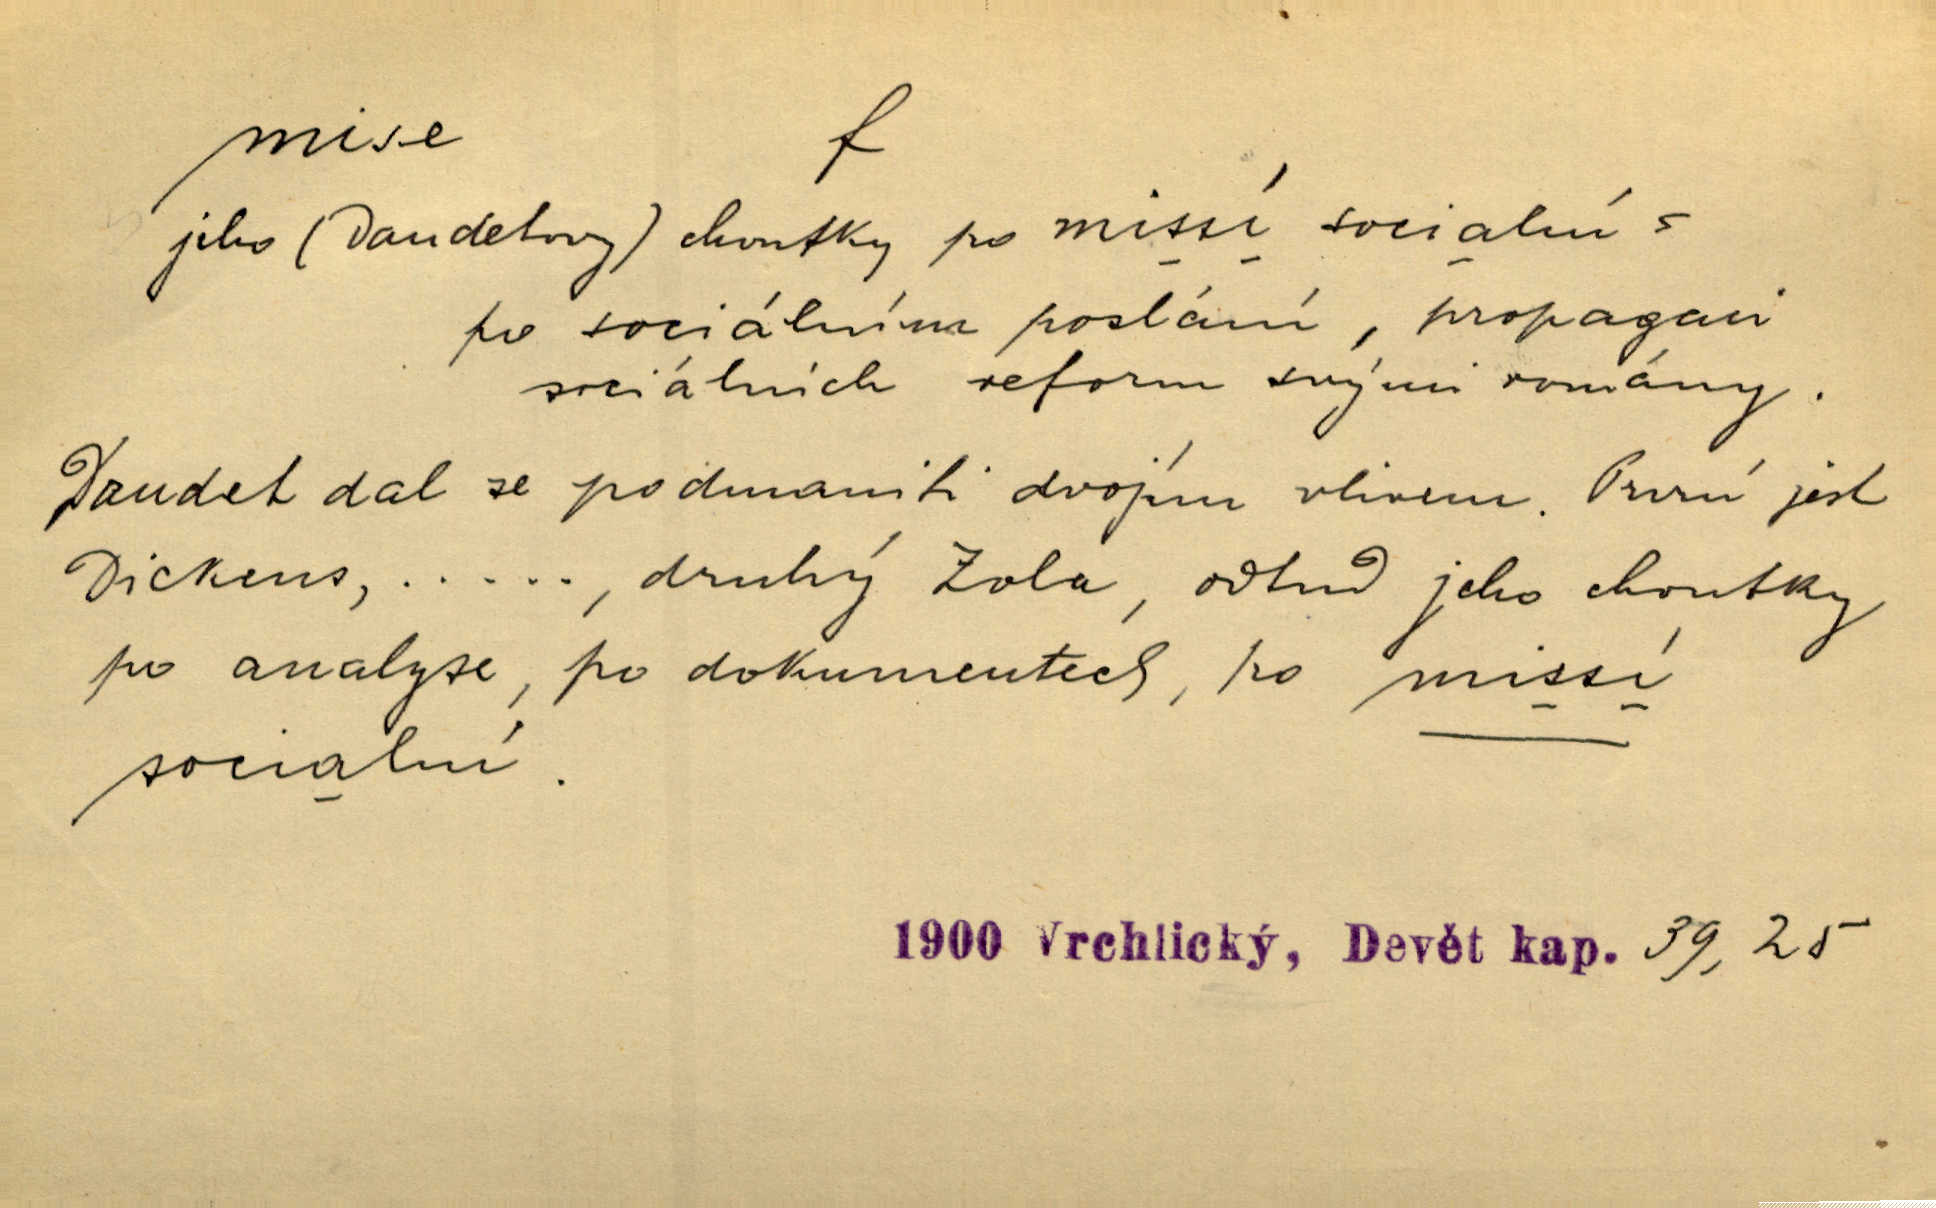 mise f
jeho (Daudetovy) choutky po missí socialní =
po sociálním poslání, propagaci
sociálních reform svými romány.
Daudet dal se podmaniti dvojím vlivem. První jest
Dickens, ....., druhý Zola, odtud jeho choutky
po analyse, po dokumentech, po missí
socialní.
1900 Vrchlický, Devět kap. 39, 25